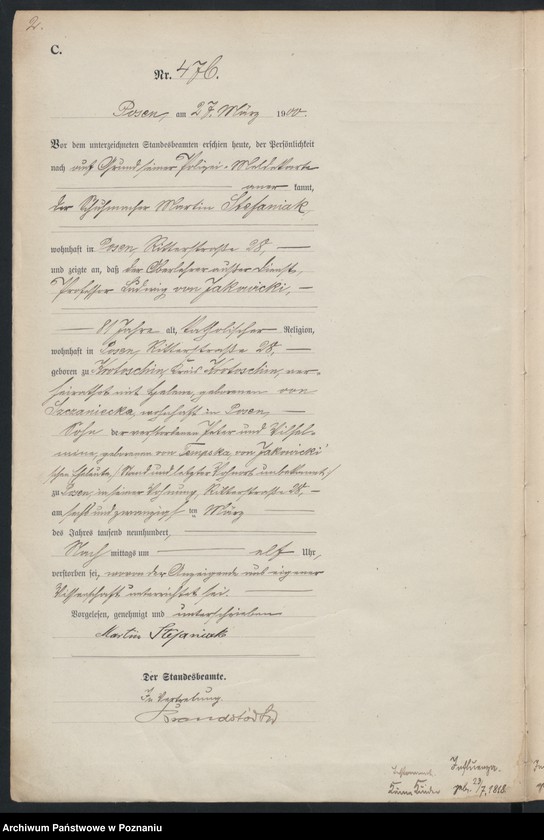 2.
C.
Nr. 476.
Posen, am 27. März 1900.
Vor dem unterzeichneten Standesbeamten erschien heute, der Persönlichkeit
nach auf Grund seiner Polizei-Meldekarte
aner kannt,
der Schuhmacher Martin Stefaniak,
wohnhaft in Posen, Ritterstraße 28,
und zeigte an, daß der Oberlehrer außer Dienst,
Professor Ludwig von Jakowicki,
81 Jahre alt, katholischer Religion,
wohnhaft in Posen, Ritterstraße 28,
geboren zu Krotoschin, Kreis Krotoschin, ver-
heirathet mit Helene, geborenen von
Szczaniecka, wohnhaft in Posen,
Sohn der verstorbenen Peter und Wilhel-
mine, geborenen von Tempska, von Jakowicki'
schen Eheleute, /Stand und letzter Wohnort unbekannt,/
zu Posen, in seiner Wohnung, Ritterstraße 28,
am sechsundzwanzigsten März
des Jahres tausend neunhundert,
Nach mittags um elf Uhr,
verstorben sei, wovon der Anzeigende aus eigener
Wissenschaft unterrichtet sei.
Vorgelesen, genehmigt und unterschrieben
Martin Stefaniak
Der Standesbeamte.
In Vertretung
Influenza.
Keine Kinder geb. 23/7. 1818.
Archiwum Państwowe w Poznaniu